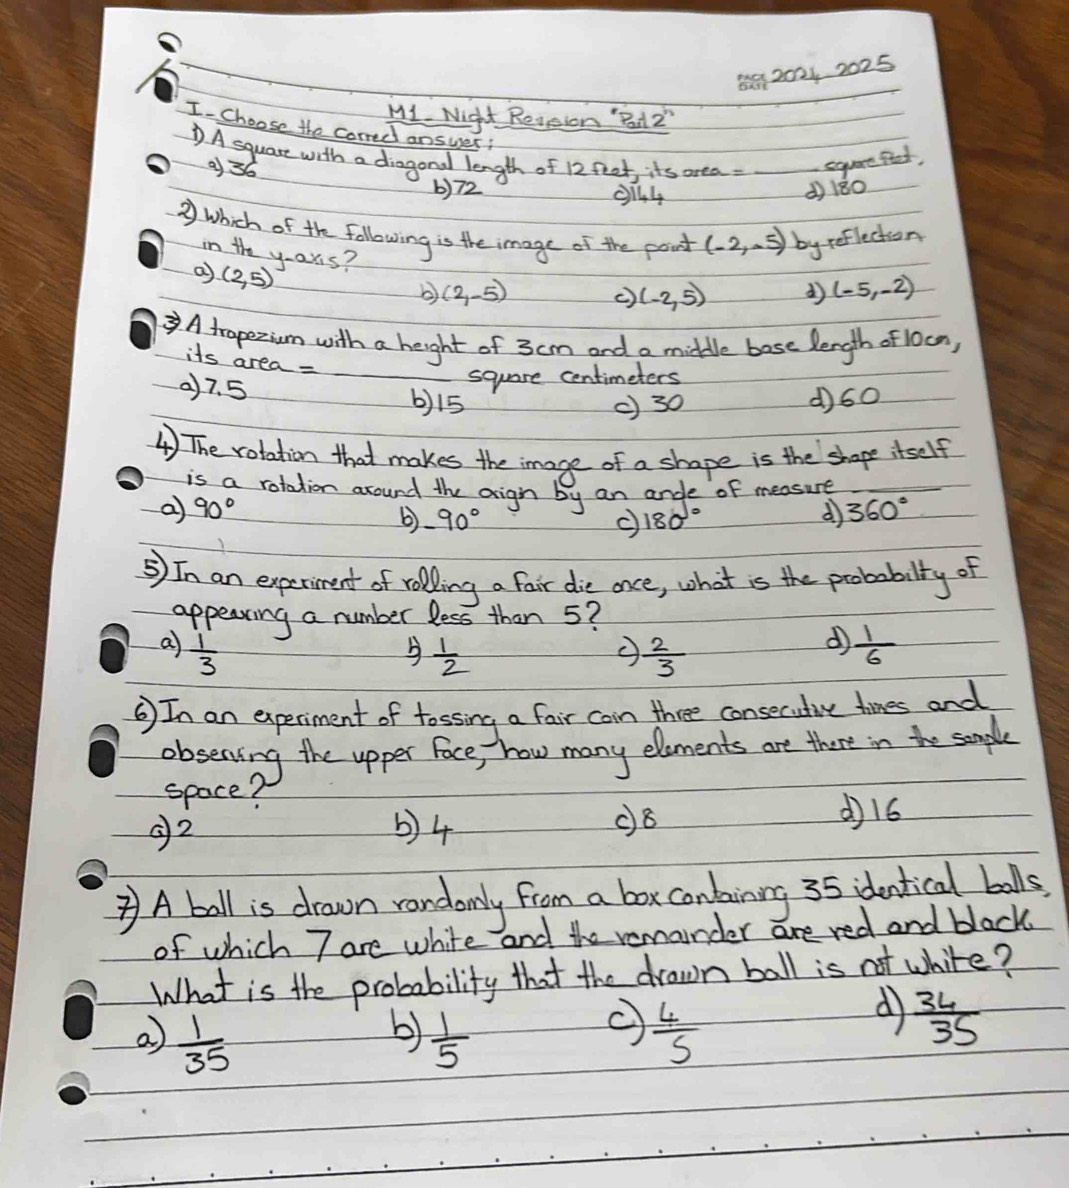 PAGE DATE 2024_2025
M1_Night Revision "Part 2"
I-Choose the correct answer:
1) A square with a diagonal length of 12 feet, its area = ____ square feet.
a) 36 b) 72 c) 144 d) 180
2) Which of the following is the image of the point (-2,-5) by reflection
in the y-axis?
a) (2,5) b) (2,-5) c) (-2,5) d) (-5,-2)
3) A trapezium with a height of 3cm and a middle base length of 10cm,
its area = ____ square centimeters
a) 7.5 b) 15 c) 30 d) 60
4) The rotation that makes the image of a shape is the shape itself
is a rotation around the orign by an angle of measure ____
a) 90° b) -90° c) 180° d) 360°
5) In an experiment of rolling a fair die once, what is the probability of
appearing a number less than 5?
a) 1/3 b) 1/2 c) 2/3 d) 1/6
6) In an experiment of tossing a fair coin three consecutive times and
observing the upper face, how many elements are there in the sample
space?
a) 2 b) 4 c) 8 d) 16
7) A ball is drawn randomly from a box containing 35 identical balls,
of which 7 are white and the remainder are red and black.
What is the probability that the drawn ball is not white?
a) 1/35 b) 1/5 c) 4/5 d) 34/35